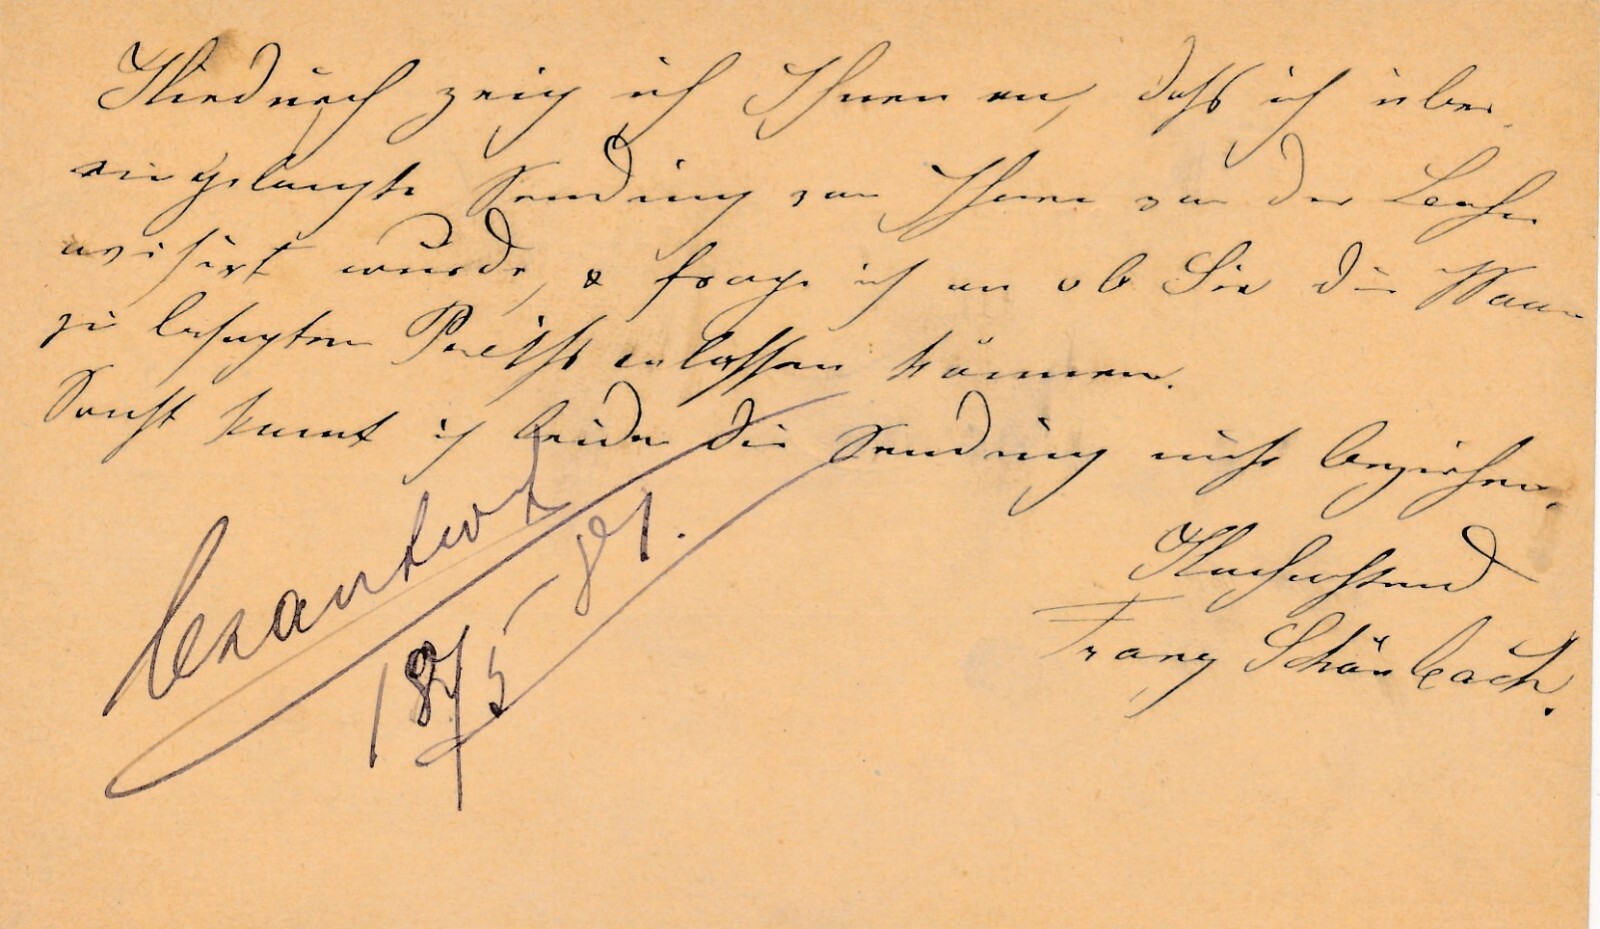 Hiedurch zeig ich Ihnen an, daß ich über
eingelangte Sendung von Ihnen von der Bahn
avisirt wurde, & frage ich an ob Sie die Waare
zu besagten Preise erlassen können.
Sonst kannt ich leider die Sendung nicht beziehen.
Hochachtend
Franz Schönbach.
beantwort
18/5 81.